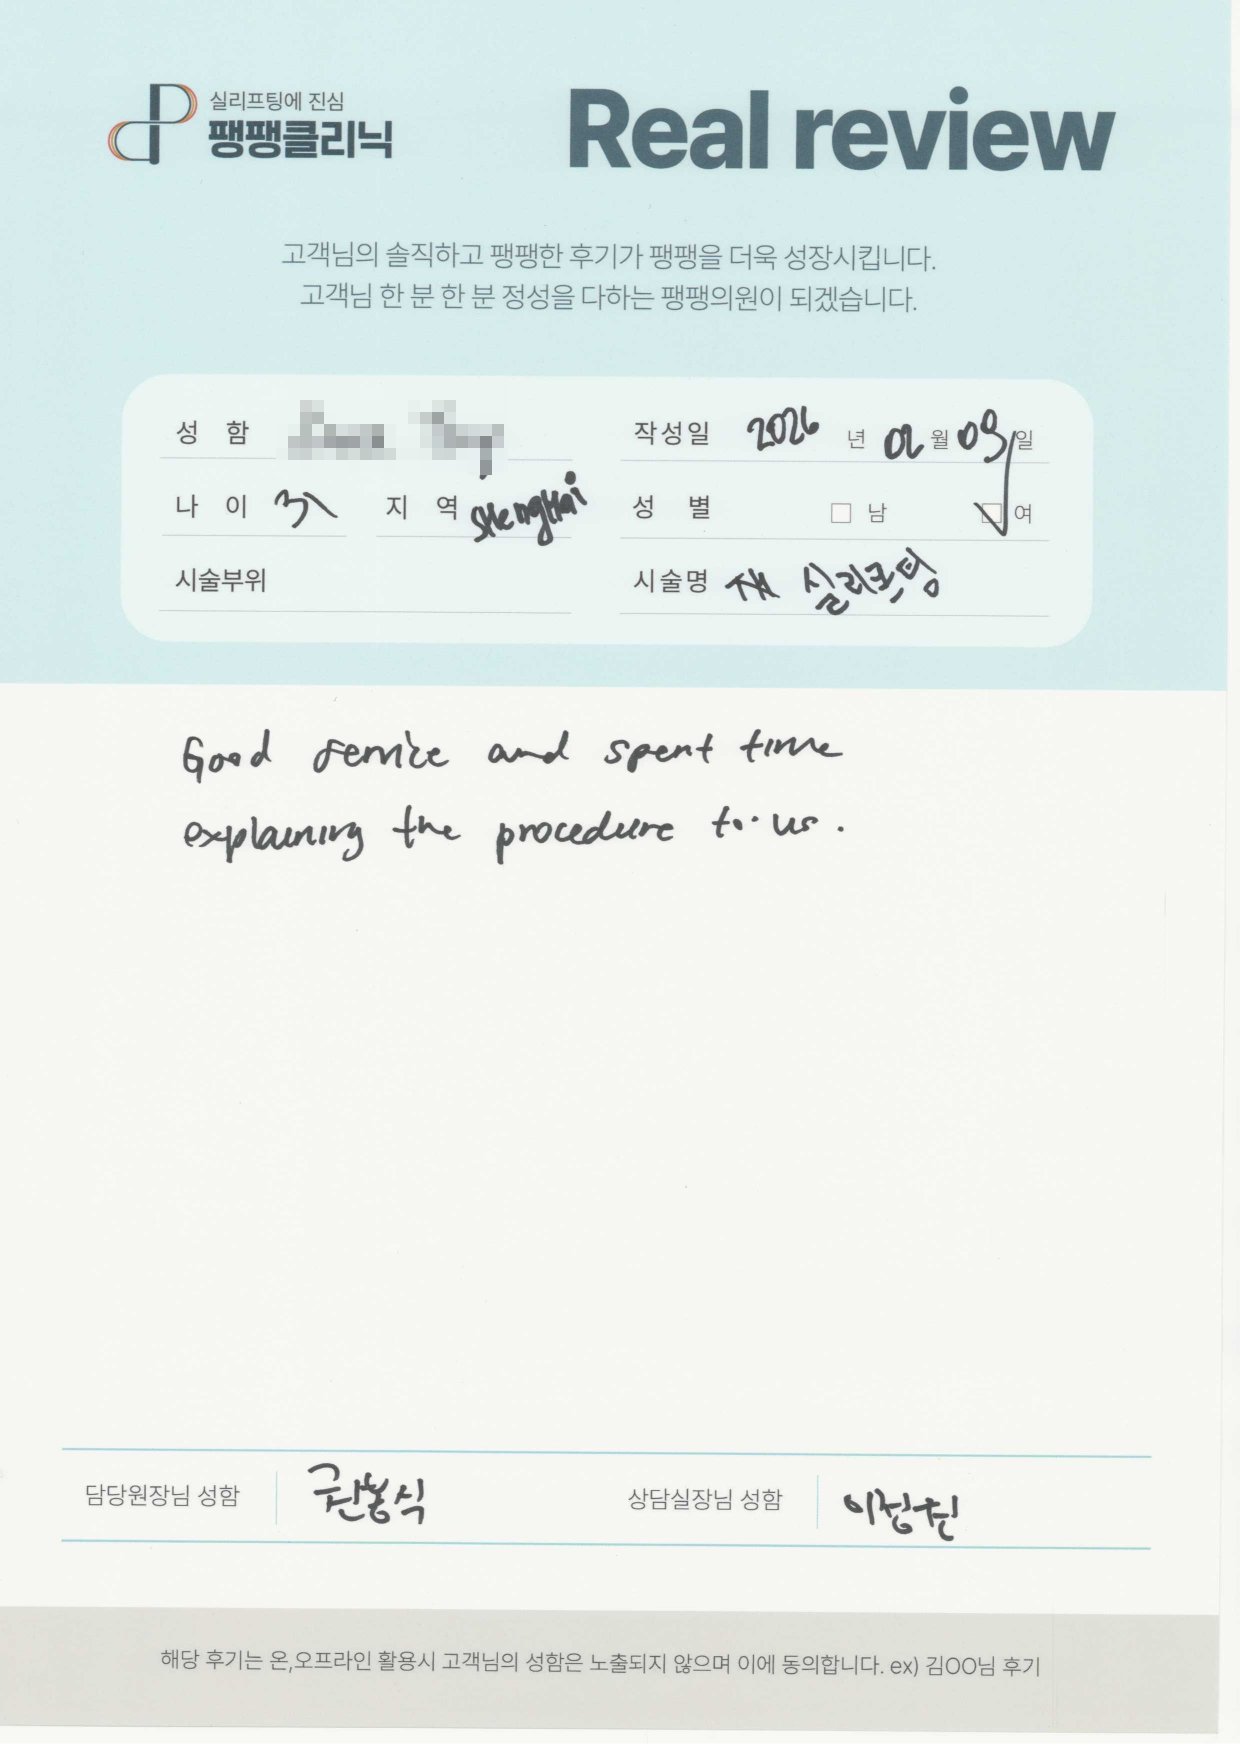 실리프팅에 진심
팽팽클리닉
Real review
고객님의 솔직하고 팽팽한 후기가 팽팽을 더욱 성장시킵니다.
고객님 한 분 한 분 정성을 다하는 팽팽의원이 되겠습니다.
성 함 작성일 2026 년 02 월 09 일
나 이 지 역 Shanghai 성 별 남 여
시술부위 시술명 실리프팅
Good service and spent time
explaining the procedure to us.
담당원장님 성함 권봉식 상담실장님 성함
해당 후기는 온,오프라인 활용시 고객님의 성함은 노출되지 않으며 이에 동의합니다. ex) 김OO님 후기